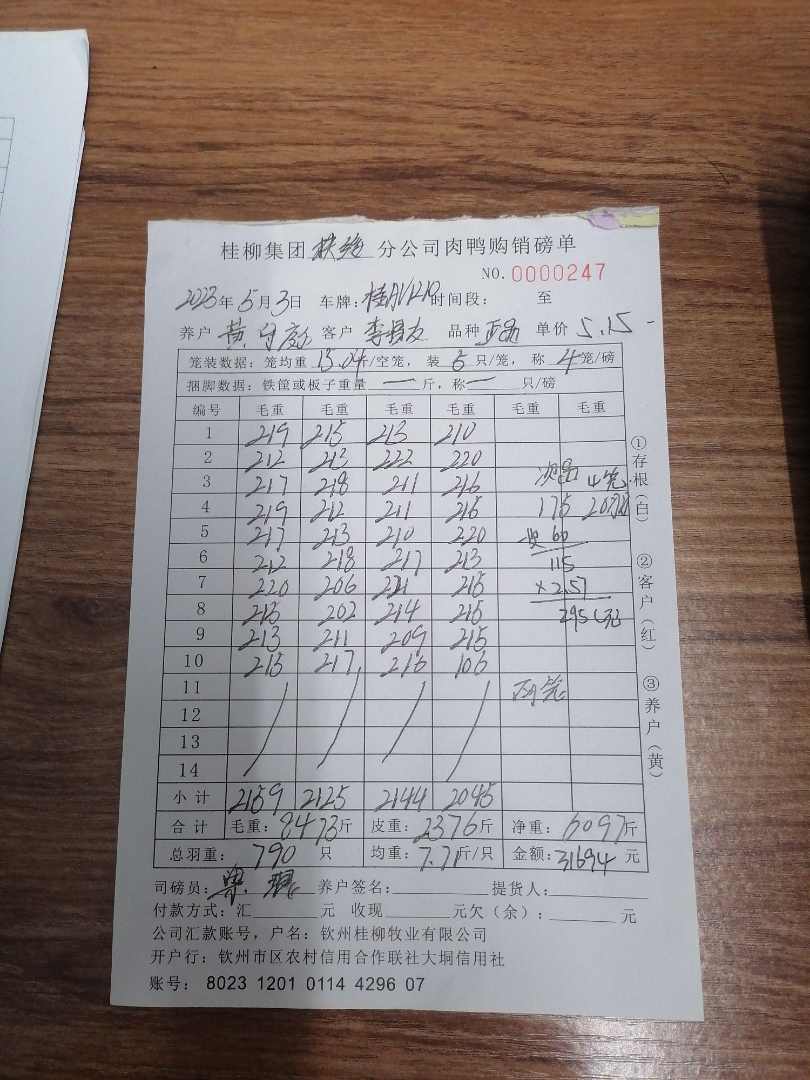 桂柳集团 扶绥 分公司肉鸭购销磅单
NO. 0000247
2023年5月3日 车牌: 时间段: 至
养户 黄守 客户 李 友 品种 单价 5.15
笼装数据: 笼均重 13.04斤/空笼, 装 5 只/笼, 称 4笼/磅
捆脚数据: 铁筐或板子重量 — 斤, 称 — 只/磅
编号 毛重 毛重 毛重 毛重 毛重 毛重
1 219 215 213 210
2 212 213 222 220
3 217 218 211 216 次品 4笼
4 219 212 211 215 175 20只
5 217 213 210 220 皮 60
6 212 218 217 213 115
7 220 206 221 215 ×2.57
8 215 202 214 215 295.5元
9 213 211 209 215
10 215 217 216 106
11 两笼
12
13
14
小计 2159 2125 2144 2045
合计 毛重: 8473斤 皮重: 2376斤 净重: 6097斤
总羽重: 790 只 均重: 7.71斤/只 金额: 31694 元
司磅员: 养户签名: 提货人:
付款方式: 汇 元 收现 元欠(余): 元
公司汇款账号, 户名: 钦州桂柳牧业有限公司
开户行: 钦州市区农村信用合作联社大垌信用社
账号: 8023 1201 0114 4296 07
①存根(白)
②客户(红)
③养户(黄)